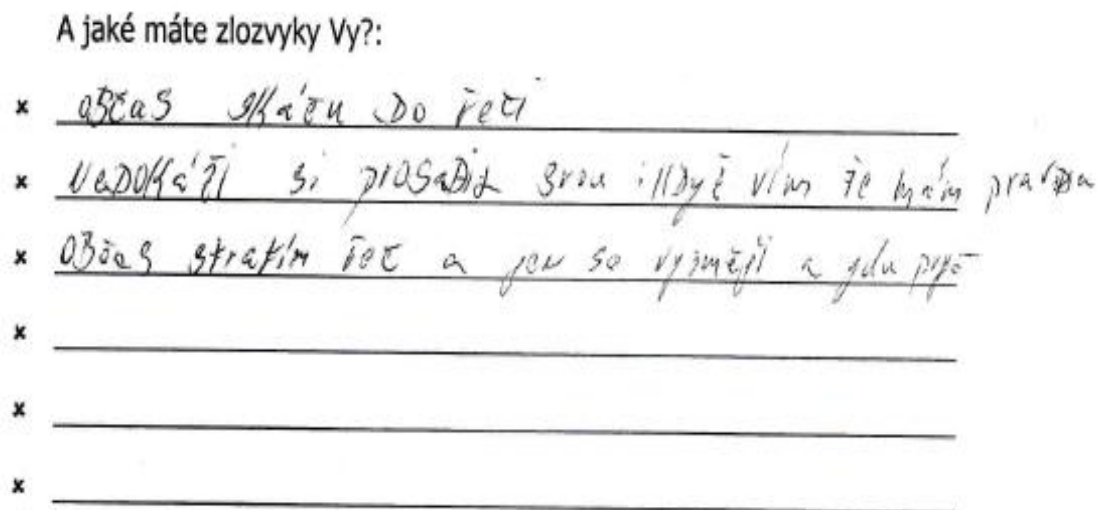 A jaké máte zlozvyky Vy?:
x občas skáču do řeči
x nedokáži si prosadit svou i když vím že mám pravdu
x občas stratím řeč a jen se vysměji a jdu pryč
x
x
x